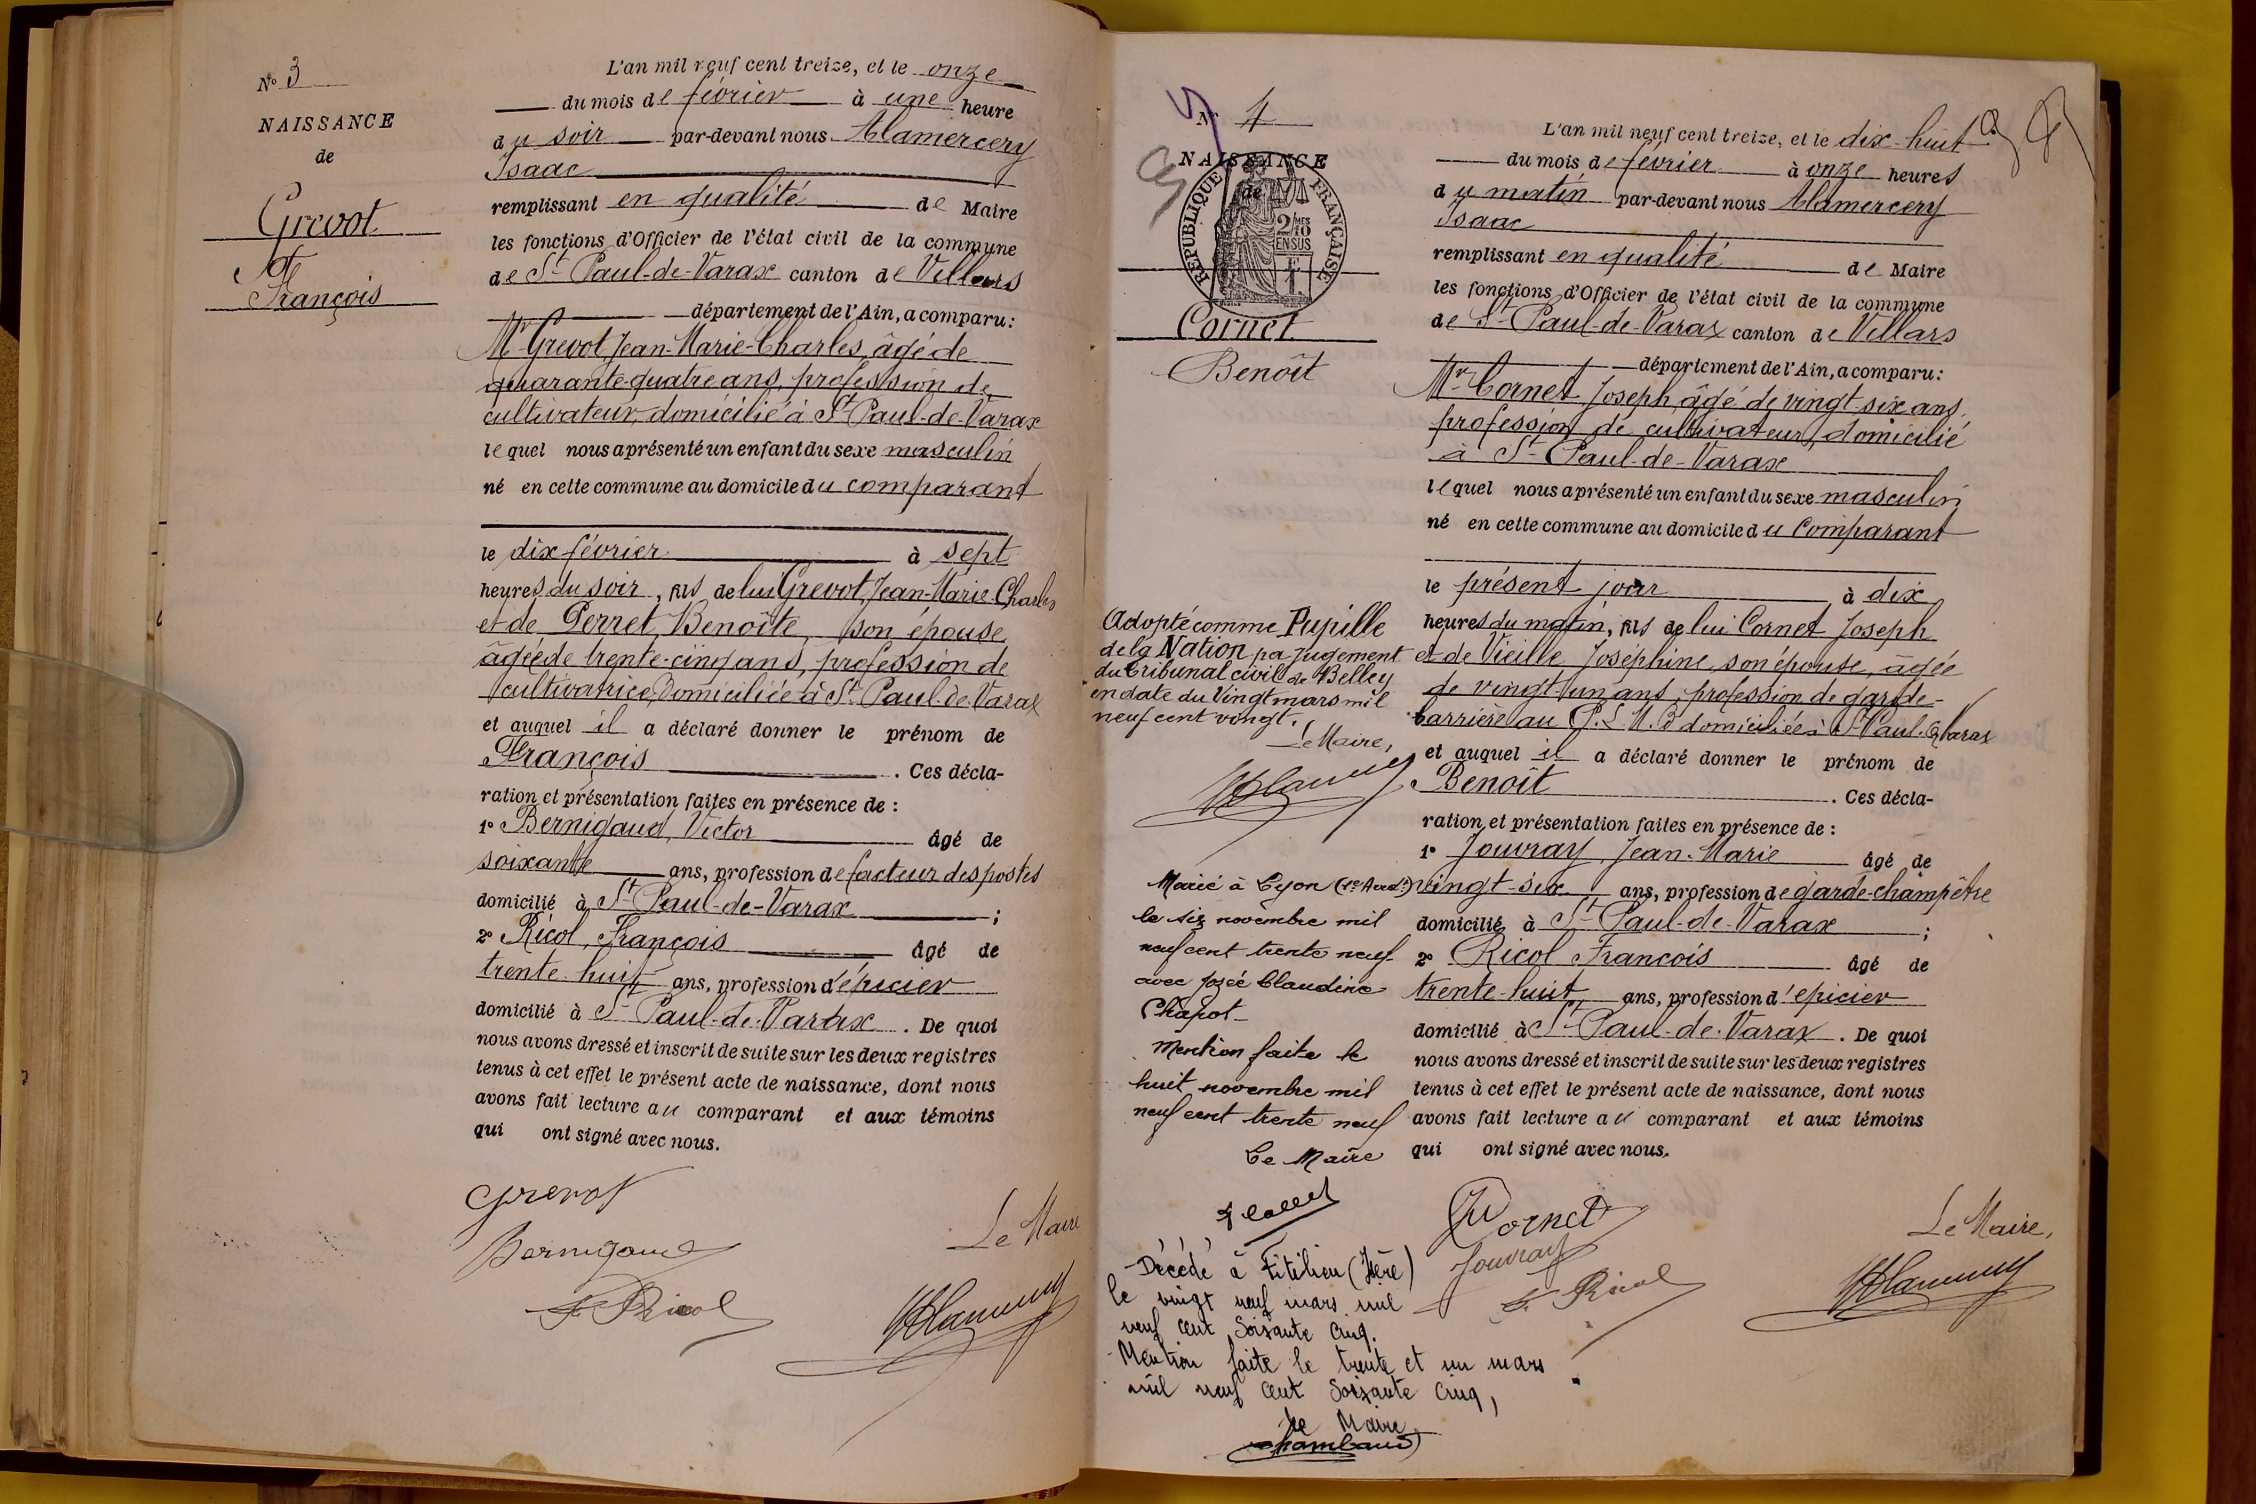 N° 3
NAISSANCE
de
Grevot
François
L'an mil neuf cent treize, et le onze
du mois de février à une heure
du soir par-devant nous Alamercery
Isaac
remplissant en qualité de Maire
les fonctions d'Officier de l'état civil de la commune
de St Paul-de-Varax canton de Villars
département de l'Ain, a comparu:
Mr Grevot Jean-Marie-Charles, âgé de
quarante-quatre ans, profession de
cultivateur, domicilié à St Paul-de-Varax
lequel nous a présenté un enfant du sexe masculin
né en cette commune au domicile du comparant
le dix février à sept
heures du soir, fils de lui Grevot, Jean-Marie-Charles
et de Perret, Benoîte, son épouse
âgée de trente-cinq ans, profession de
cultivatrice, domiciliée à St Paul-de-Varax
et auquel il a déclaré donner le prénom de
François. Ces décla-
ration et présentation faites en présence de :
1° Bernigaud, Victor âgé de
soixante ans, profession de facteur des postes
domicilié à St Paul-de-Varax ;
2° Ricol, François âgé de
trente-huit ans, profession d'épicier
domicilié à St Paul-de-Varax. De quoi
nous avons dressé et inscrit de suite sur les deux registres
tenus à cet effet le présent acte de naissance, dont nous
avons fait lecture au comparant et aux témoins
qui ont signé avec nous.
Grevot
Le Maire
Bernigaud
F. Ricol
N° 4
NAISSANCE
de
RÉPUBLIQUE FRANÇAISE
2/10
EN SUS
Cornet
Benoît
L'an mil neuf cent treize, et le dix-huit
du mois de février à onze heures
du matin par-devant nous Alamercery
Isaac
remplissant en qualité de Maire
les fonctions d'Officier de l'état civil de la commune
de St Paul-de-Varax canton de Villars
département de l'Ain, a comparu:
Mr Cornet, Joseph, âgé de vingt-six ans,
profession de cultivateur, domicilié
à St Paul-de-Varax
lequel nous a présenté un enfant du sexe masculin
né en cette commune au domicile du comparant
le présent jour à dix
heures du matin, fils de lui Cornet Joseph
et de Vieille Joséphine, son épouse, âgée
de vingt-un ans, profession de garde-
barrière au P.L.M. domiciliée à St Paul-de-Varax
et auquel il a déclaré donner le prénom de
Benoît. Ces décla-
ration et présentation faites en présence de :
1° Jouvray, Jean-Marie âgé de
vingt-six ans, profession de garde-champêtre
domicilié à St Paul-de-Varax ;
2° Ricol François âgé de
trente-huit ans, profession d'epicier
domicilié à St Paul-de-Varax. De quoi
nous avons dressé et inscrit de suite sur les deux registres
tenus à cet effet le présent acte de naissance, dont nous
avons fait lecture au comparant et aux témoins
qui ont signé avec nous.
Cornet
Jouvray
F. Ricol
Le Maire,
Adopté comme Pupille
de la Nation pa jugement
du tribunal civil de Belley
en date du Vingt mars mil
neuf cent vingt.
Le Maire,
Marié à Lyon (1er Arrdt)
le six novembre mil
neuf cent trente neuf
avec Josée Claudine
Chapot
Mention faite le
huit novembre mil
neuf cent trente neuf
Le Maire
Décédé à Fitilieu (Isère)
le vingt neuf mars mil
neuf cent soixante cinq.
Mention faite le trente et un mars
mil neuf cent soixante cinq,
Le Maire,